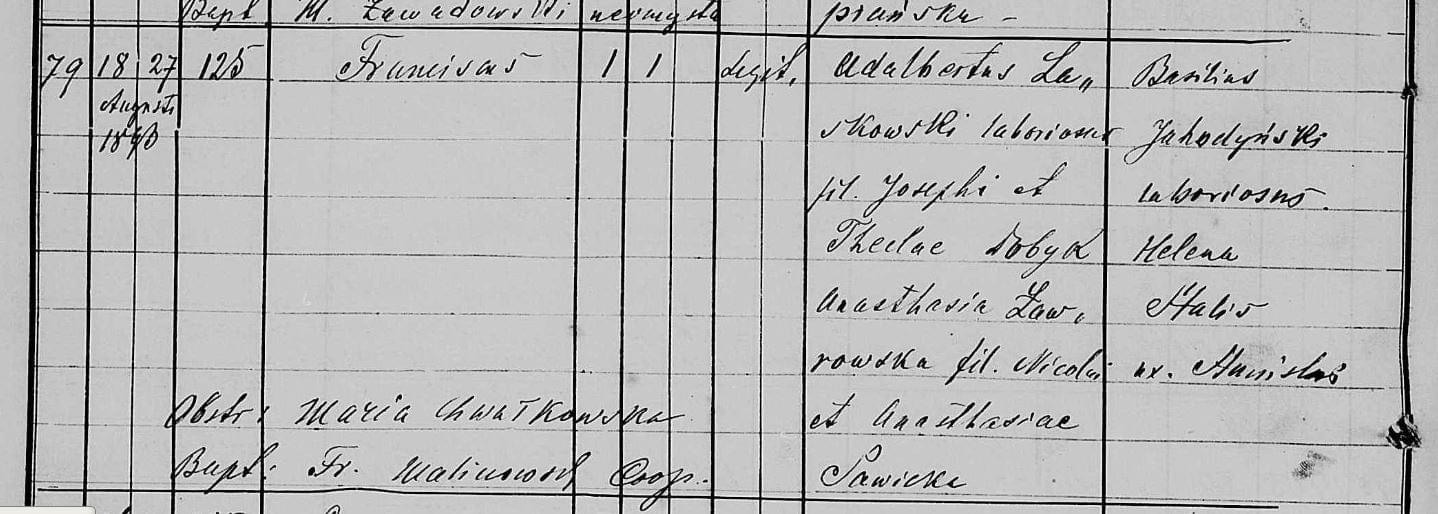 Bapt M. Zawadowski neomysta piańska -
79 18 27 125 Franciscus 1 1 Legit. Adalbertus La„ Basilius
Augusti
1893 skowski laboriosus Jahodyński
fil. Josephi et laboriosus.
Theclae Dobyk Helena
Anasthasia Zaw„ Stalis
rowska fil. Nicolai ux. Stanislai
Obstr: Maria Chwałkowska et Anasthasiae
Bapt: Fr. Malinowski Coop. Sawicka